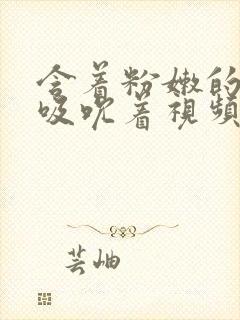 含着粉嫩的
吸吮着視頻
芸岫